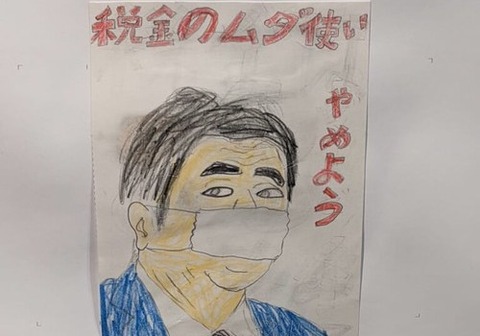 税金のムダ使い
やめよう